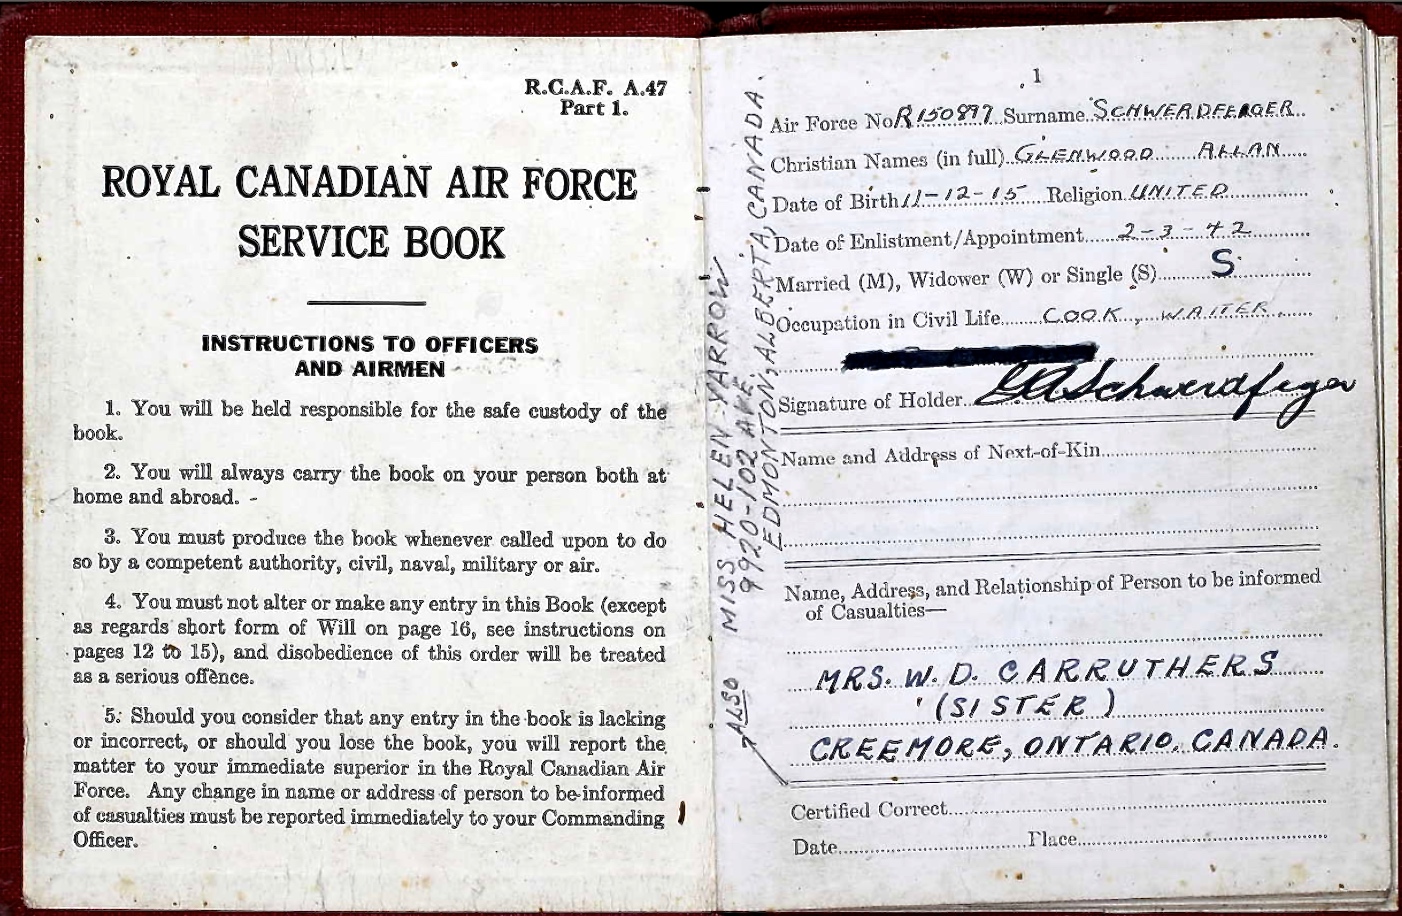 R.C.A.F. A.47
Part 1.
ROYAL CANADIAN AIR FORCE
SERVICE BOOK
INSTRUCTIONS TO OFFICERS
AND AIRMEN
1. You will be held responsible for the safe custody of the
book.
2. You will always carry the book on your person both at
home and abroad.
3. You must produce the book whenever called upon to do
so by a competent authority, civil, naval, military or air.
4. You must not alter or make any entry in this Book (except
as regards short form of Will on page 16, see instructions on
pages 12 to 15), and disobedience of this order will be treated
as a serious offence.
5. Should you consider that any entry in the book is lacking
or incorrect, or should you lose the book, you will report the
matter to your immediate superior in the Royal Canadian Air
Force. Any change in name or address of person to be informed
of casualties must be reported immediately to your Commanding
Officer.
1
Air Force No R150897 Surname SCHWERDFEGER
Christian Names (in full) GLENWOOD ALLAN
Date of Birth 11-12-15 Religion UNITED
Date of Enlistment/Appointment 2-3-42
Married (M), Widower (W) or Single (S) S
Occupation in Civil Life COOK, WAITER
Signature of Holder GASchwerdfeger
Name and Address of Next-of-Kin
Name, Address, and Relationship of Person to be informed
of Casualties—
MRS. W. D. CARRUTHERS
(SISTER)
CREEMORE, ONTARIO. CANADA.
Certified Correct
Date Place
ALSO MISS HELEN YARROW
9920-102 AVE.
EDMONTON, ALBERTA, CANADA.